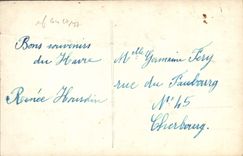 Bons souvenirs
du Havre
Renée Hourdin
Mlle Germaine Fery
rue du Faubourg
No 45
Cherbourg.